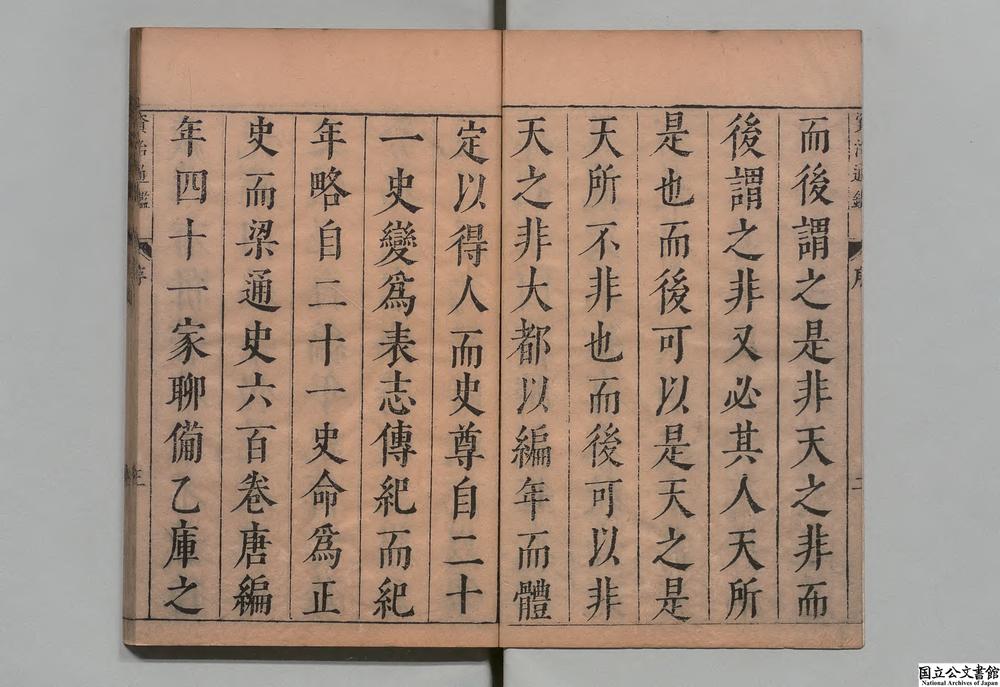 而後謂之是非天之非而
後謂之非又必其人天所
是也而後可以是天之是
天所不非也而後可以非
天之非大都以編年而體
定以得人而史尊自二十
一史變爲表志傳紀而紀
年略自二十一史命爲正
史而梁通史六百卷唐編
年四十一家聊備乙庫之
資治通鑑
序
二
資治通鑑
序
国立公文書館
National Archives of Japan